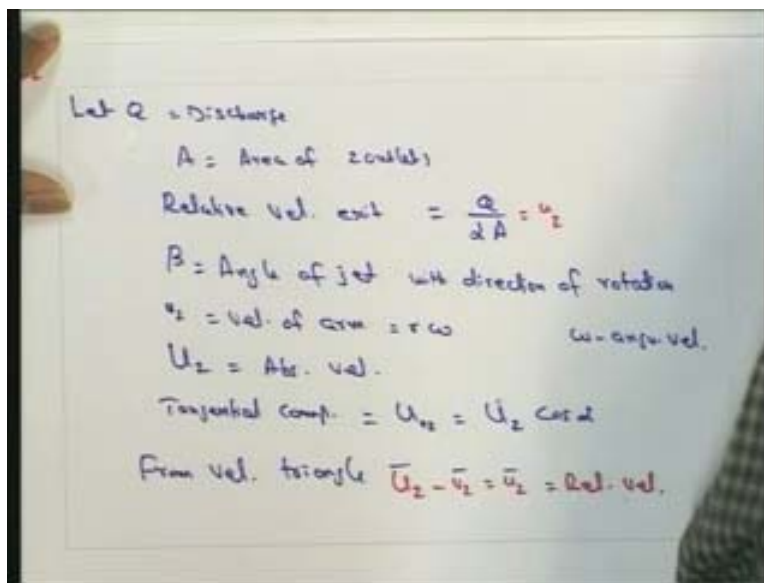 Let Q = Discharge
A = Area of 2 outlets
Relative vel. exit = Q / 2A = u₂
β = Angle of jet with direction of rotation
v₂ = vel. of arm = rω ω - angu. vel.
U₂ = Abs. vel.
Tangential comp. = U = U₂ cos α
From vel. triangle Ū₂ - v̄₂ = ū₂ = Rel. vel.